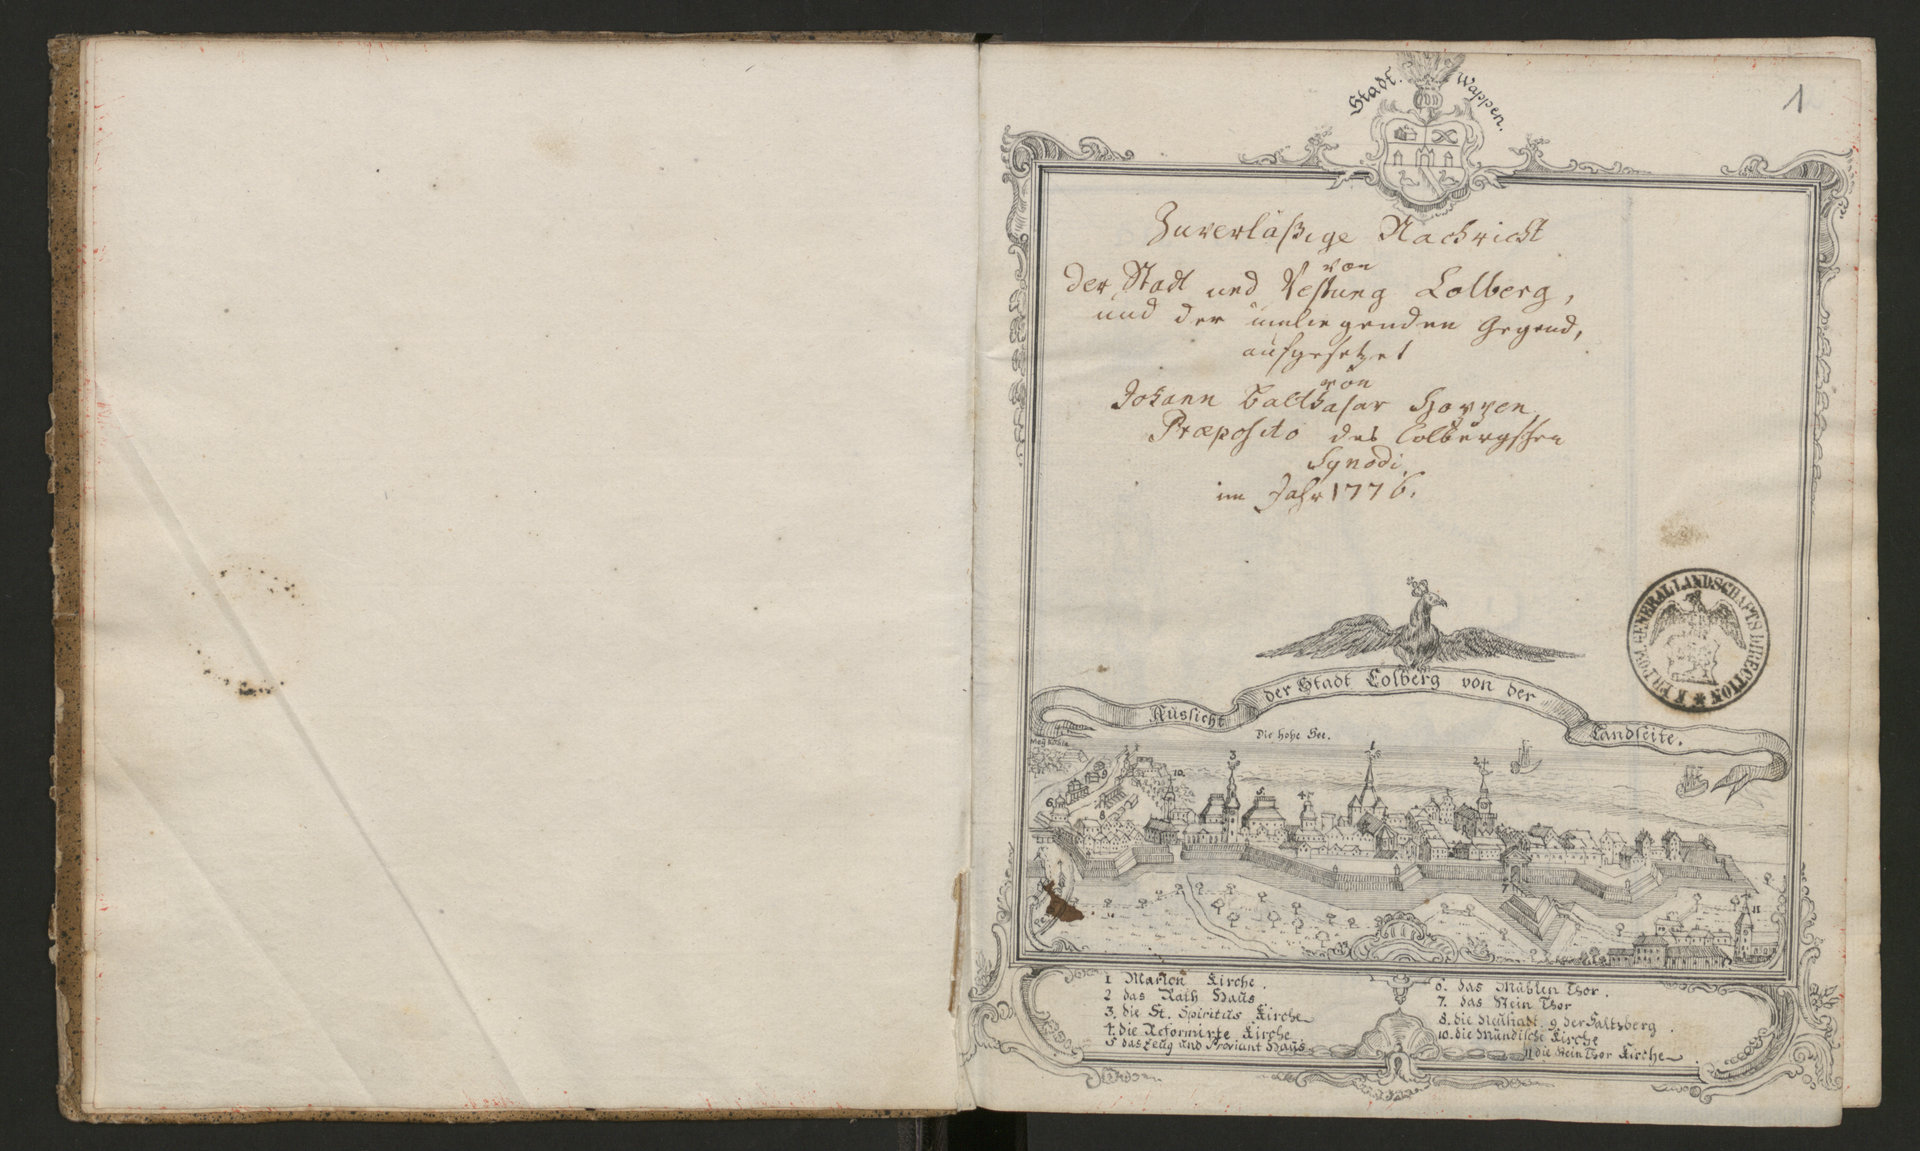 1
Stadt. Wappen.
Zuverläßige Nachricht
von
der Stadt und Vestung Colberg,
und der umliegenden Gegend,
aufgesetzet
von
Johann Balthasar Hoppen
Præposito des Colbergschen
Synodi,
im Jahr 1776.
K. PR. POM. GENERAL LANDSCHAFTS DIRECTION
Aussicht der Stadt Colberg von der Landseite.
Die hohe See.
1 Marien Kirche.
2 das Rath Haus
3. die St. Spiritus Kirche
4. die Reformirte Kirche
5 das Zeug und Proviant Haus
6. das Mühlen Thor.
7. das Stein Thor
8. die Neustadt 9 der Saltsberg.
10. die Mündische Kirche
11 die Stein Thor Kirche.